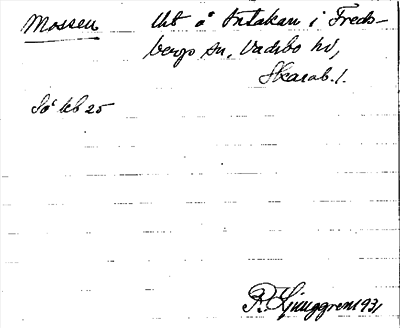 Mossen   Utb å Antakan i Freds-
bergs sn, Vadsbo hd,
Skarab. l.
Så kb 25
R. Ljunggren 1931